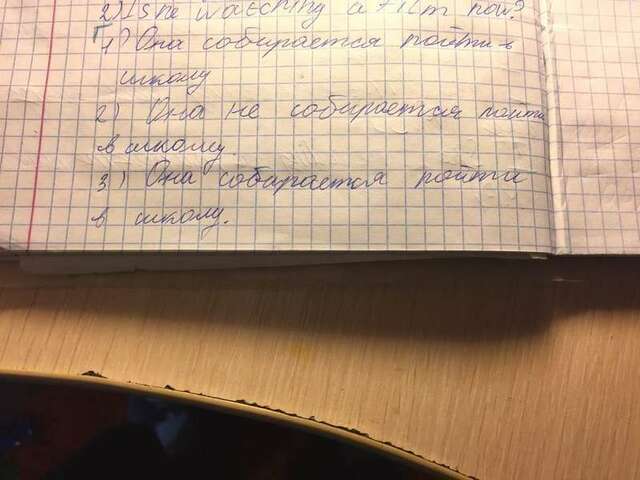 2) Is he watching a film now?
1) Она собирается пойти в
школу
2) Она не собирается пойти
в школу.
3) Она собирается пойти
в школу.